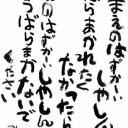 まえのはずかしい
しゃしん
ばらまかれたく
なかったら
のはずかしいしゃしん
うばらまかないで
ください